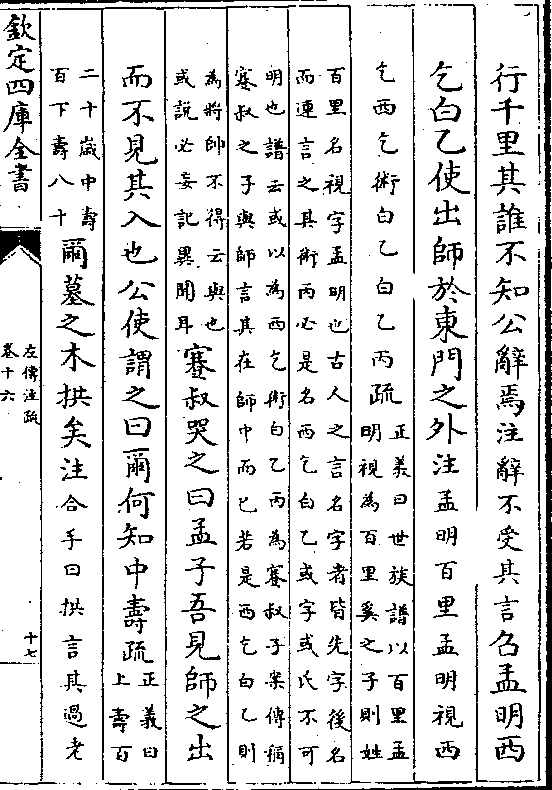 行千里其誰不知公辭焉注辭不受其言召孟明西
乞白乙使出師於東門之外注孟明百里孟明視西
乞西乞術白乙白乙丙疏正義曰世族譜以百里孟
明視為百里奚之子則姓
百里名視字孟明也古人之言名字者皆先字後名
而連言之其術丙必是名西乞白乙或字或氏不可
明也譜云或以為西乞術白乙丙為蹇叔子案傳稱
蹇叔之子與師言其在師中而已若是西乞白乙則
為將帥不得云與也
或說必妄記異聞耳
蹇叔哭之曰孟子吾見師之出
而不見其入也公使謂之曰爾何知中壽疏正義曰
上壽百
二十歲中壽
百下壽八十
爾墓之木拱矣注合手曰拱言其過老
欽定四庫全書
左傳注疏
卷十六
十七